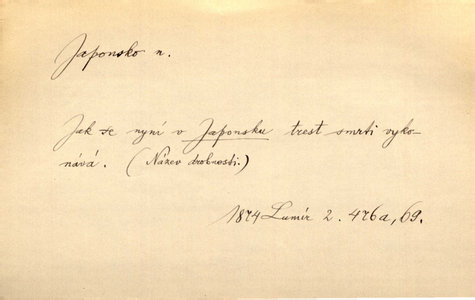 Japonsko n.
Jak se nyní v Japonsku trest smrti vyko-
nává. (Název drobnosti.)
1874 Lumír 2. 476a, 69.